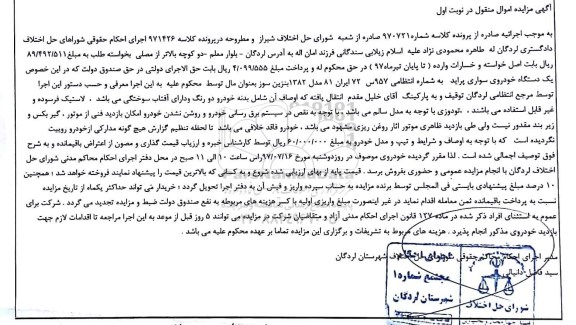 آگهی مزایده اموال منقول در نوبت اول
به موجب اجرائیه صادره از پرونده کلاسه شماره ۹۷۰۷۲۱ صادره از شعبه شورای حل اختلاف شیراز و مطروحه درپرونده کلاسه ۹۷۱۴۲۶ اجرای احکام حقوقی شوراهای حل اختلاف
دادگستری لردگان له طاهره محمودی نژاد علیه اسلام زیلایی سندگانی فرزند امان اله به آدرس لردگان - بلوار معلم -دو کوچه بالاتر از مصلی بخواسته طلب به مبلغ ۸۹/۴۹۲/۵۱۱
ریال بابت اصل خواسته و خسارات وارده ( تا پایان تیرماه۹۷ ) در حق محکوم له و پرداخت مبلغ ۴/۰۹۹/۵۵۵ ریال بابت حق الاجرای دولتی در حق صندوق دولت که در این خصوص
یک دستگاه خودروی سواری پراید به شماره انتظامی ۹۵۷س ۷۲ ایران ۸۱ مدل ۱۳۸۲بنزین سوز بعنوان مال توسط محکوم علیه به این اجرا معرفی و حسب دستور این اجرا
توسط مرجع انتظامی لردگان توقیف و به پارکینگ آقای خلیل مقدم انتقال یافته که اوصاف آن شامل بدنه خودرو دو رنگ ودارای آفتاب سوختگی می باشد ، لاستیک فرسوده و
غیر قابل استفاده می باشند ، تودوزی با توجه به مدل سالم می باشد ، با توجه به نقص در سیستم برق رسانی خودرو و روشن نشدن خودرو امکان بازدید فنی از موتور ، گیر بکس و
زیر بند مقدور نیست ولی طی بازدید ظاهری موتور اثار روغن ریزی مشهود می باشد ، خودرو فاقد خلافی می باشد تا لحظه تنظیم گزارش هیچ گونه مدارکی ازخودرو روییت
نگردیده است که با توجه به اوصاف و شرایط و تیپ و مدل خودرو به مبلغ ۶۰/۰۰۰/۰۰۰ ریال توسط کارشناس خبره و ارزیاب قیمت گذاری و مصون از اعتراض باقیمانده و به شرح
فوق توصیف اجمالی شده است . لذا مقرر گردیده خودروی موصوف در روزدوشنبه مورخ ۹۷/۰۷/۱۶راس ساعت ۱۰ الی ۱۱ صبح در محل دفتر اجرای احکام محاکم مدنی شورای حل
اختلاف لردگان با انجام مزایده عمومی و حضوری بفروش برسد . قیمت پایه از بهای ارزیابی شده شروع و به کسانی که بالاترین قیمت را پیشنهاد نمایند فروخته خواهد شد ؛ همچنین
۱۰ درصد مبلغ پیشنهادی بایستی فی المجلس توسط برنده مزایده به حساب سپرده واریز و فیش آن به دفتر اجرا تحویل گردد ؛ خریدار می تواند حداکثر یکماه از تاریخ مزایده
نسبت به پرداخت باقیمانده ثمن معامله اقدام نماید در غیر اینصورت مبلغ واریزی اولیه با کسر هزینه های مربوطه به نفع صندوق دولت ضبط و مزایده تجدید می گردد . شرکت برای
عموم به استثنای افراد ذکر شده در ماده ۱۲۷ قانون اجرای احکام مدنی آزاد و متقاضیان شرکت در مزایده می توانند ۵ روز قبل از موعد به این اجرا مراجعه تا اقدامات لازم جهت
بازدید خودروی مذکور انجام پذیرد . هزینه های مربوط به تشریفات و برگزاری این مزایده تماما بر عهده محکوم علیه می باشد .
مدیر اجرای احکام حقوقی اختلاف شهرستان لردگان
سید فاضل دانیالی
مجتمع شماره ۱
شهرستان لردگان
شورای حل اختلاف